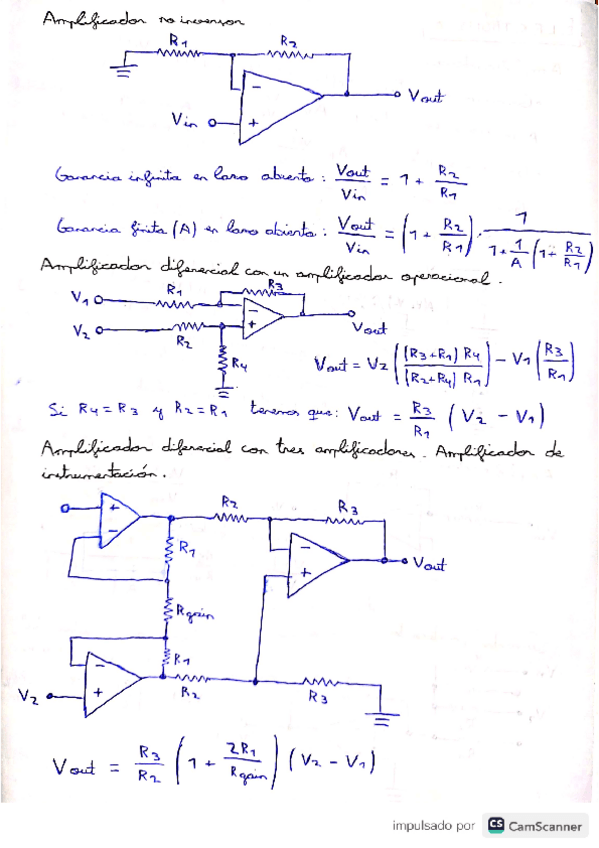 Amplificador no inversor
R1
R2
Vout
Vin
-
+
Ganancia infinita en lazo abierto : Vout/Vin = 1 + R2/R1
Ganancia finita (A) en lazo abierto : Vout/Vin = (1 + R2/R1) · 1/(1 + 1/A (1 + R2/R1))
Amplificador diferencial con un amplificador operacional.
V1
R1
R3
-
+
V2
R2
R4
Vout
Vout = V2 ((R3+R1) R4/(R2+R4) R1) - V1 (R3/R1)
Si R4 = R3 y R2 = R1 tenemos que: Vout = R3/R1 (V2 - V1)
Amplificador diferencial con tres amplificadores. Amplificador de
instrumentación.
+
-
R2
R3
R1
-
+
Vout
Rgain
R1
-
+
V2
R2
R3
Vout = R3/R2 (1 + 2R1/Rgain) (V2 - V1)
impulsado por CS CamScanner